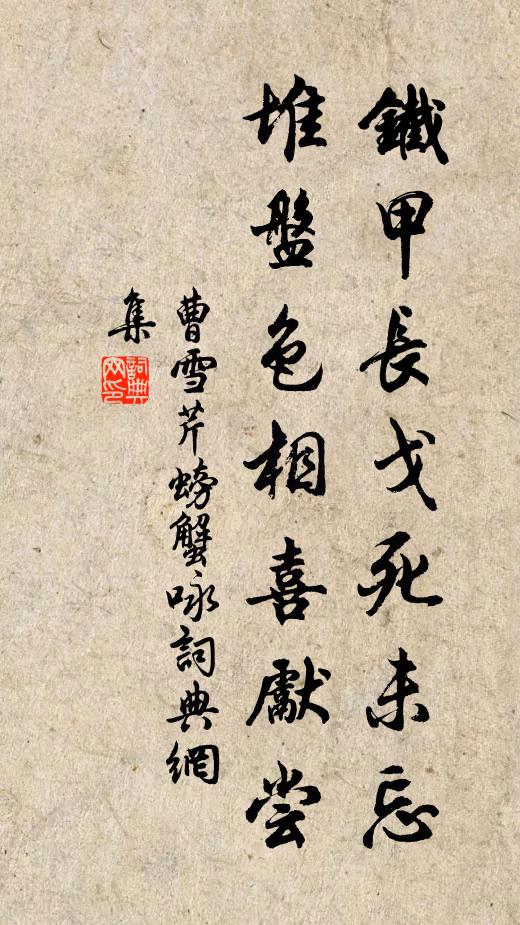 鐵甲長戈死未忘
堆盤色相喜獻尝
曹雪芹螃蟹咏詞典網
集
詞典
网印